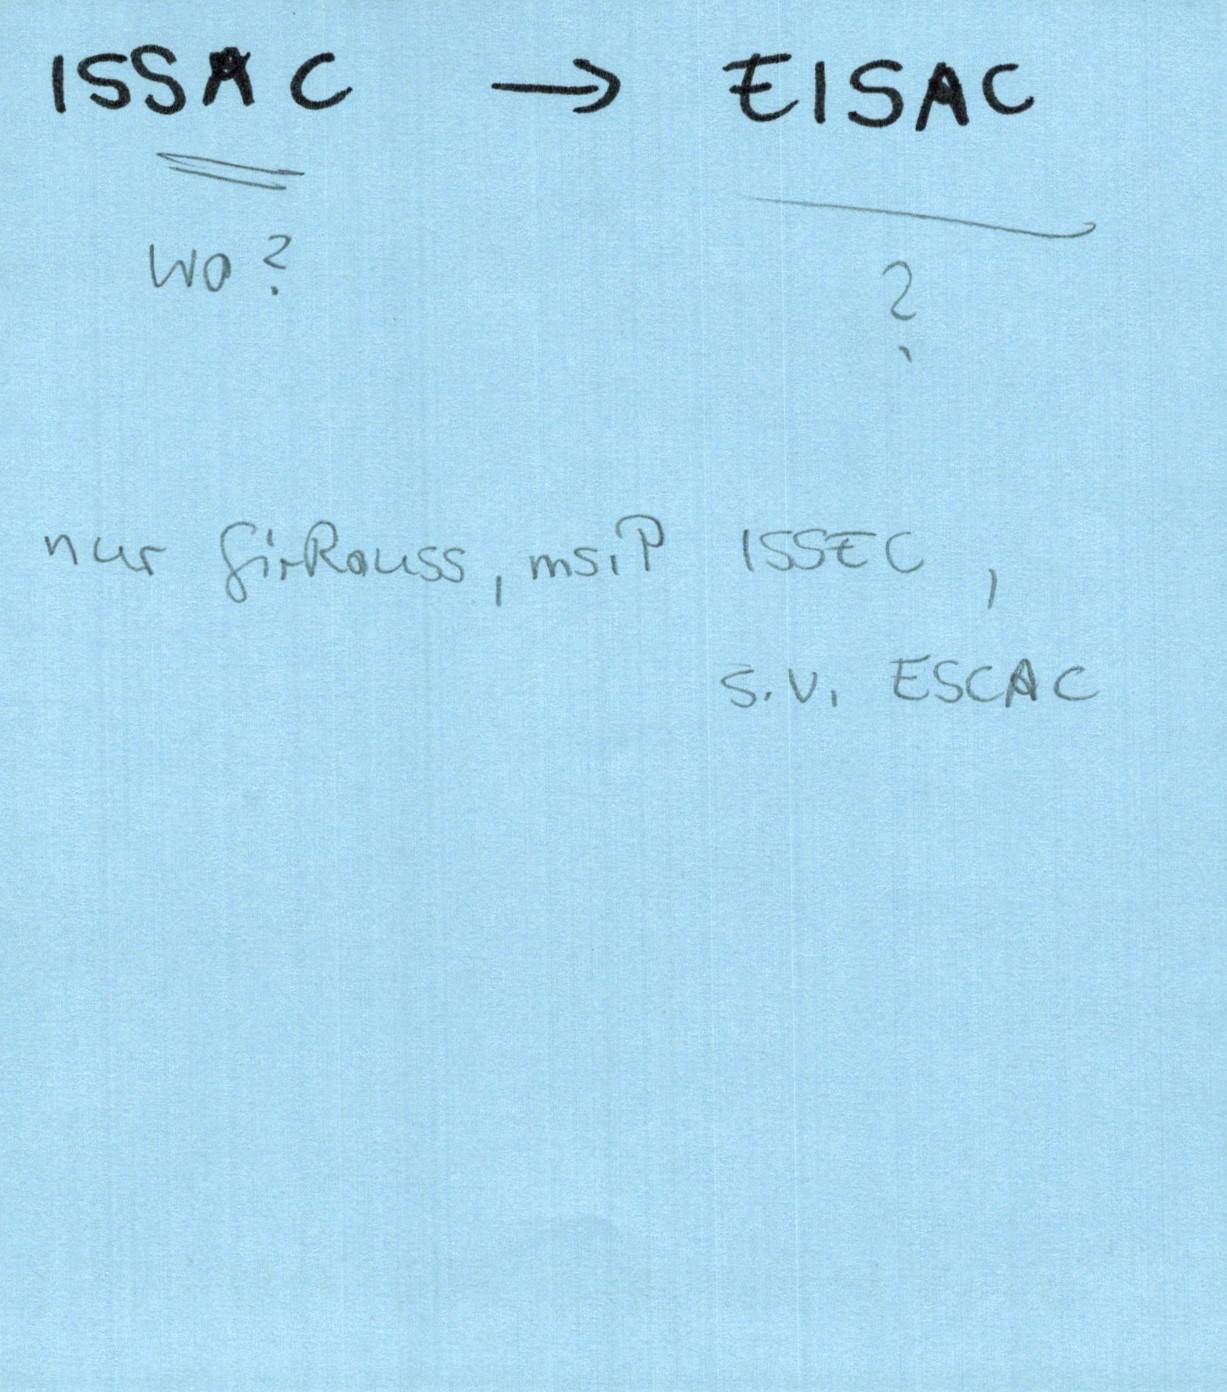 ISSAC → EISAC
wo? ?
nur GirRouss, ms.P ISSEC,
s.v. ESCAC